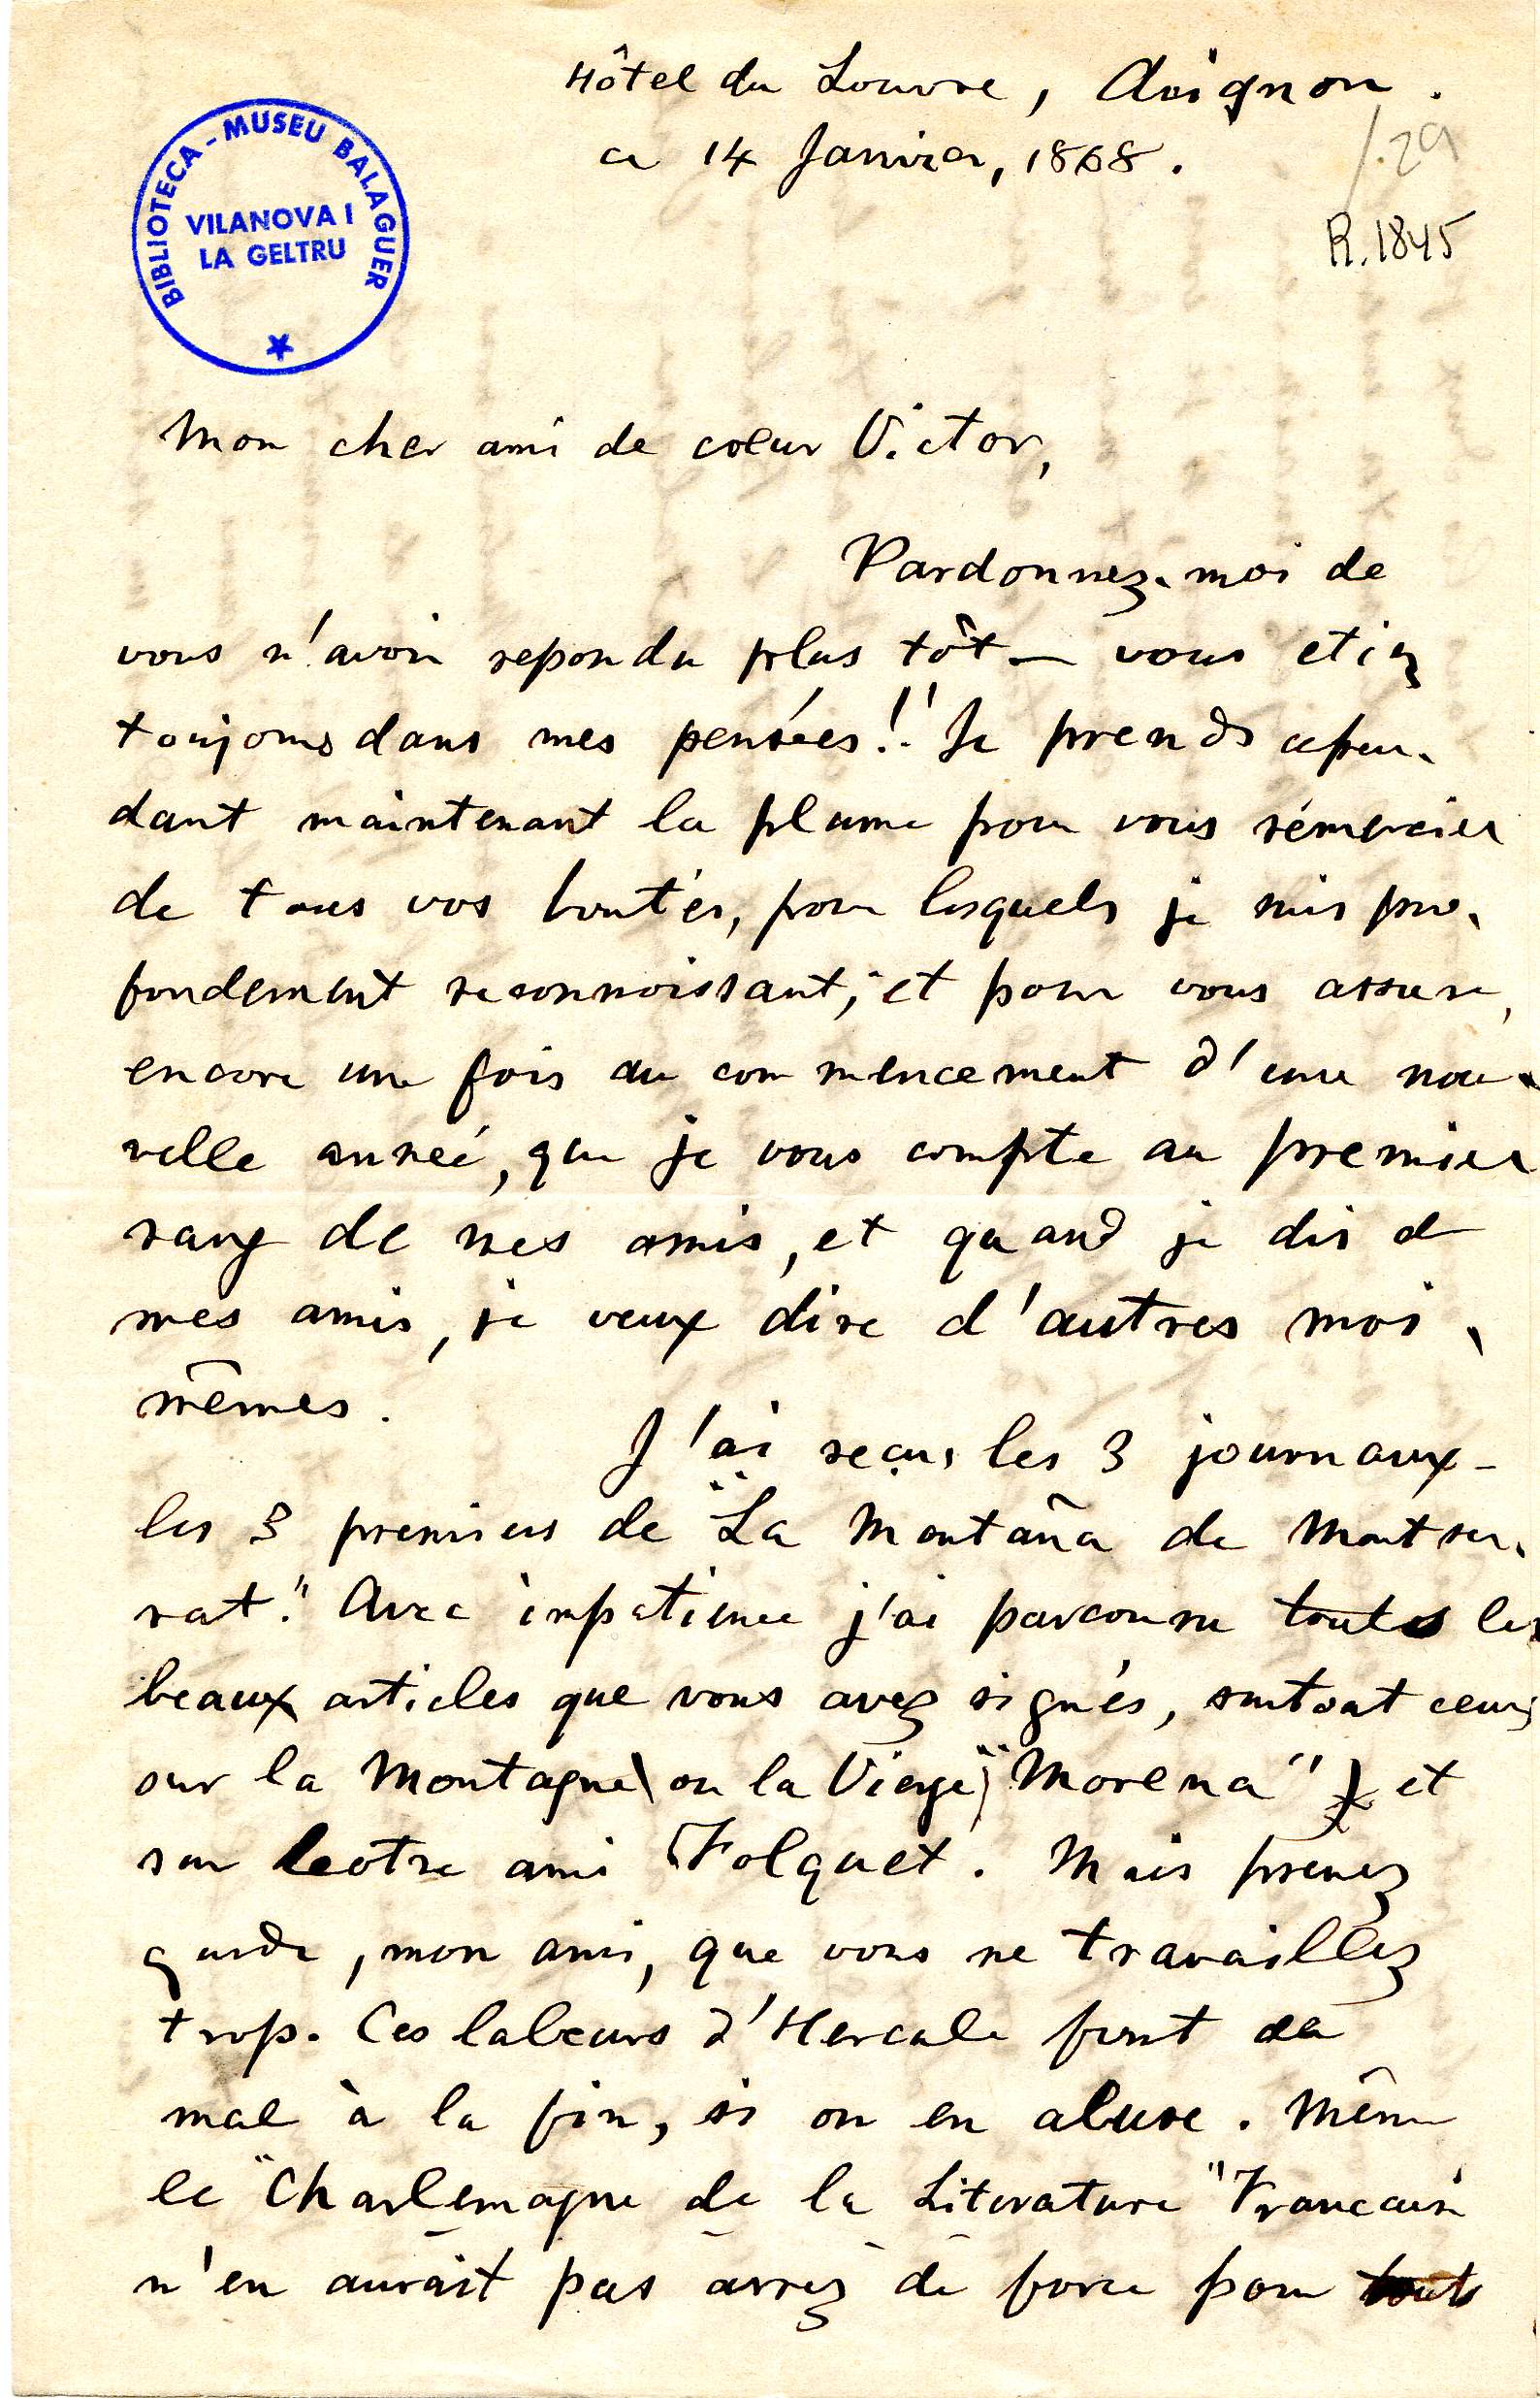 Hôtel du Louvre, Avignon.
ce 14 Janvier, 1868.
1.29
R.1845
BIBLIOTECA - MUSEU BALAGUER
VILANOVA I
LA GELTRU
Mon cher ami de coeur Victor,
Pardonnez-moi de
vous n'avoir repondu plus tôt — vous etiez
toujours dans mes pensées!! Je prends cepen-
dant maintenant la plume pour vous rémercier
de tous vos bontés, pour lesquels je suis pro-
fondement reconnoissant, et pour vous assurer,
encore une fois au commencement d'une nou-
velle anneé, que je vous compte au premier
rang de mes amis, et quand je dis de
mes amis, je veux dire d'autres moi-
mêmes.
J'ai reçus les 3 journaux -
les 3 premiers de "La Montaña de Montser-
rat." Avec impatience j'ai parcouru touts les
beaux articles que vous avez signés, surtout ceux
sur la Montagne (ou la Vierge) "Morena" et
sur votre ami Folquet. Mais prenez
garde, mon ami, que vous ne travaillez
trop. Ces labeurs d'Hercule font du
mal à la fin, si on en abuse. Même
le "Charlemagne de la Literature" Francaise
n'en aurait pas assez de force pour touts